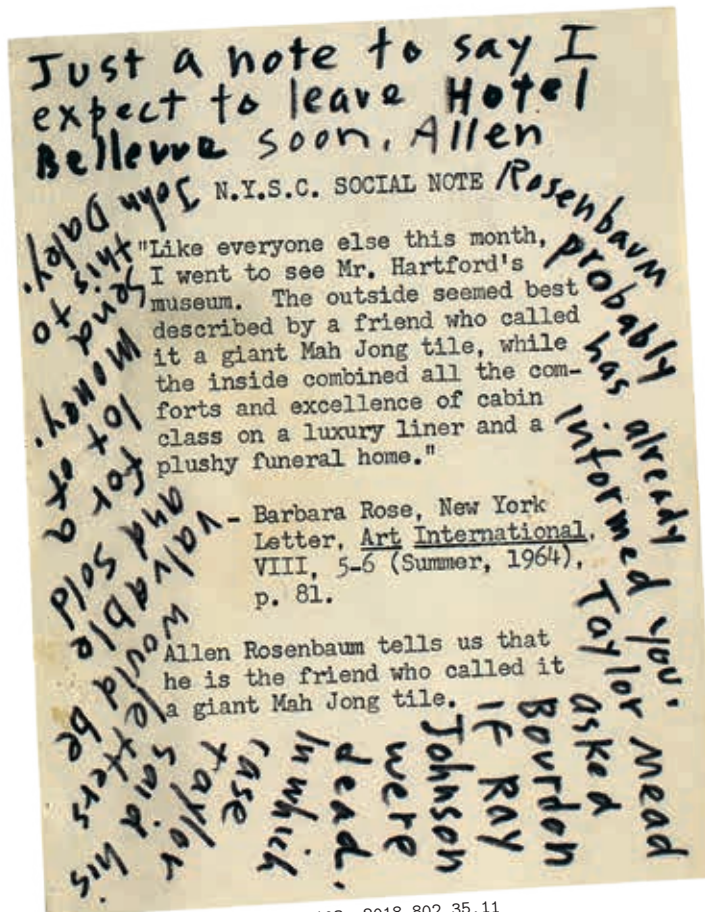 Just a note to say I
expect to leave Hotel
Bellevue soon. Allen
Rosenbaum
probably
has already
informed you.
Taylor Mead
asked
Bourdon
if Ray
Johnson
were
dead.
In which
case
Taylor
said his
letters
would be
valuable
and sold
for a
lot of
money.
Send
this to
John Daley.
N.Y.S.C. SOCIAL NOTE
"Like everyone else this month,
I went to see Mr. Hartford's
museum. The outside seemed best
described by a friend who called
it a giant Mah Jong tile, while
the inside combined all the com-
forts and excellence of cabin
class on a luxury liner and a
plushy funeral home."
- Barbara Rose, New York
Letter, Art International,
VIII, 5-6 (Summer, 1964),
p. 81.
Allen Rosenbaum tells us that
he is the friend who called it
a giant Mah Jong tile.
2018.802.35.11